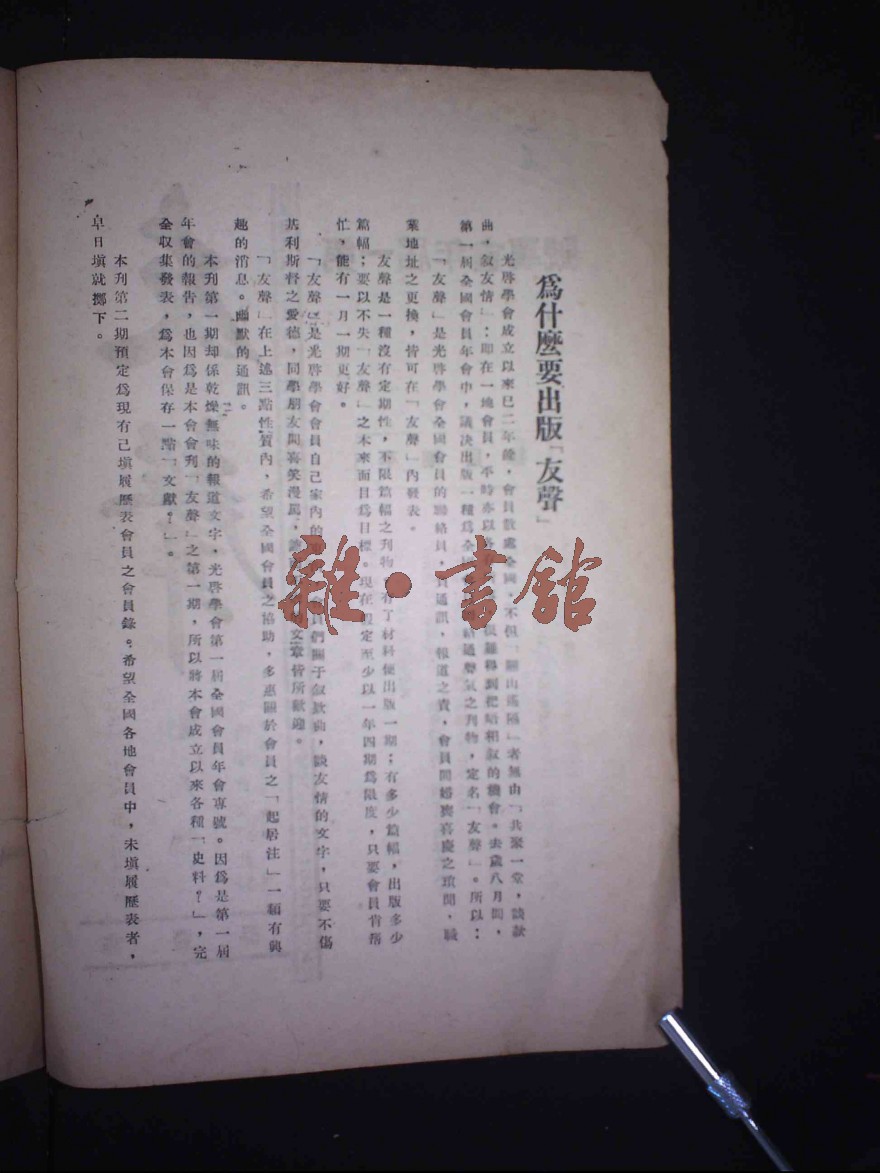 為什麼要出版「友聲」
光啓學會成立以來已二年餘，會員散處全國，不但「關山遙隔」者無由「共聚一堂，談欵
曲，叙友情」：即在一地會員，平時亦以各難得到把晤相叙的機會。去歲八月間，
第一屆全國會員年會中，議决出版一種為全通聲氣之刊物，定名「友聲」。所以：
「友聲」是光啓學會全國會員的聯絡員，負通訊，報道之責，會員間婚喪喜慶之瑣聞，職
業地址之更換，皆可在「友聲」內發表。
友聲是一種沒有定期性，不限篇幅之刊物有了材料便出版一期；有多少篇幅，出版多少
篇幅；要以不失「友聲」之本來面目為目標。現在假定至少以一年四期為限度，只要會員肯幫
忙，能有一月一期更好。
「友聲」是光啓學會會員自己家內的員們關于叙欵曲，談友情的文字，只要不傷
基利斯督之愛德，同學朋友間喜笑漫罵，文章皆所歡迎。
「友聲」在上述三點性質內，希望全國會員之協助，多惠關於會員之「起居注」一類有興
趣的消息。幽默的通訊。
本刊第一期却係乾燥無味的報道文字，光啓學會第一屆全國會員年會專號。因為是第一屆
年會的報告，也因為是本會會刊「友聲」之第一期，所以將本會成立以來各種「史料？」，完
全收集發表，為本會保存一點「文獻？」。
本刊第二期預定為現有已填履歷表會員之會員錄。希望全國各地會員中，未填履歷表者，
早日填就擲下。
雜·書館